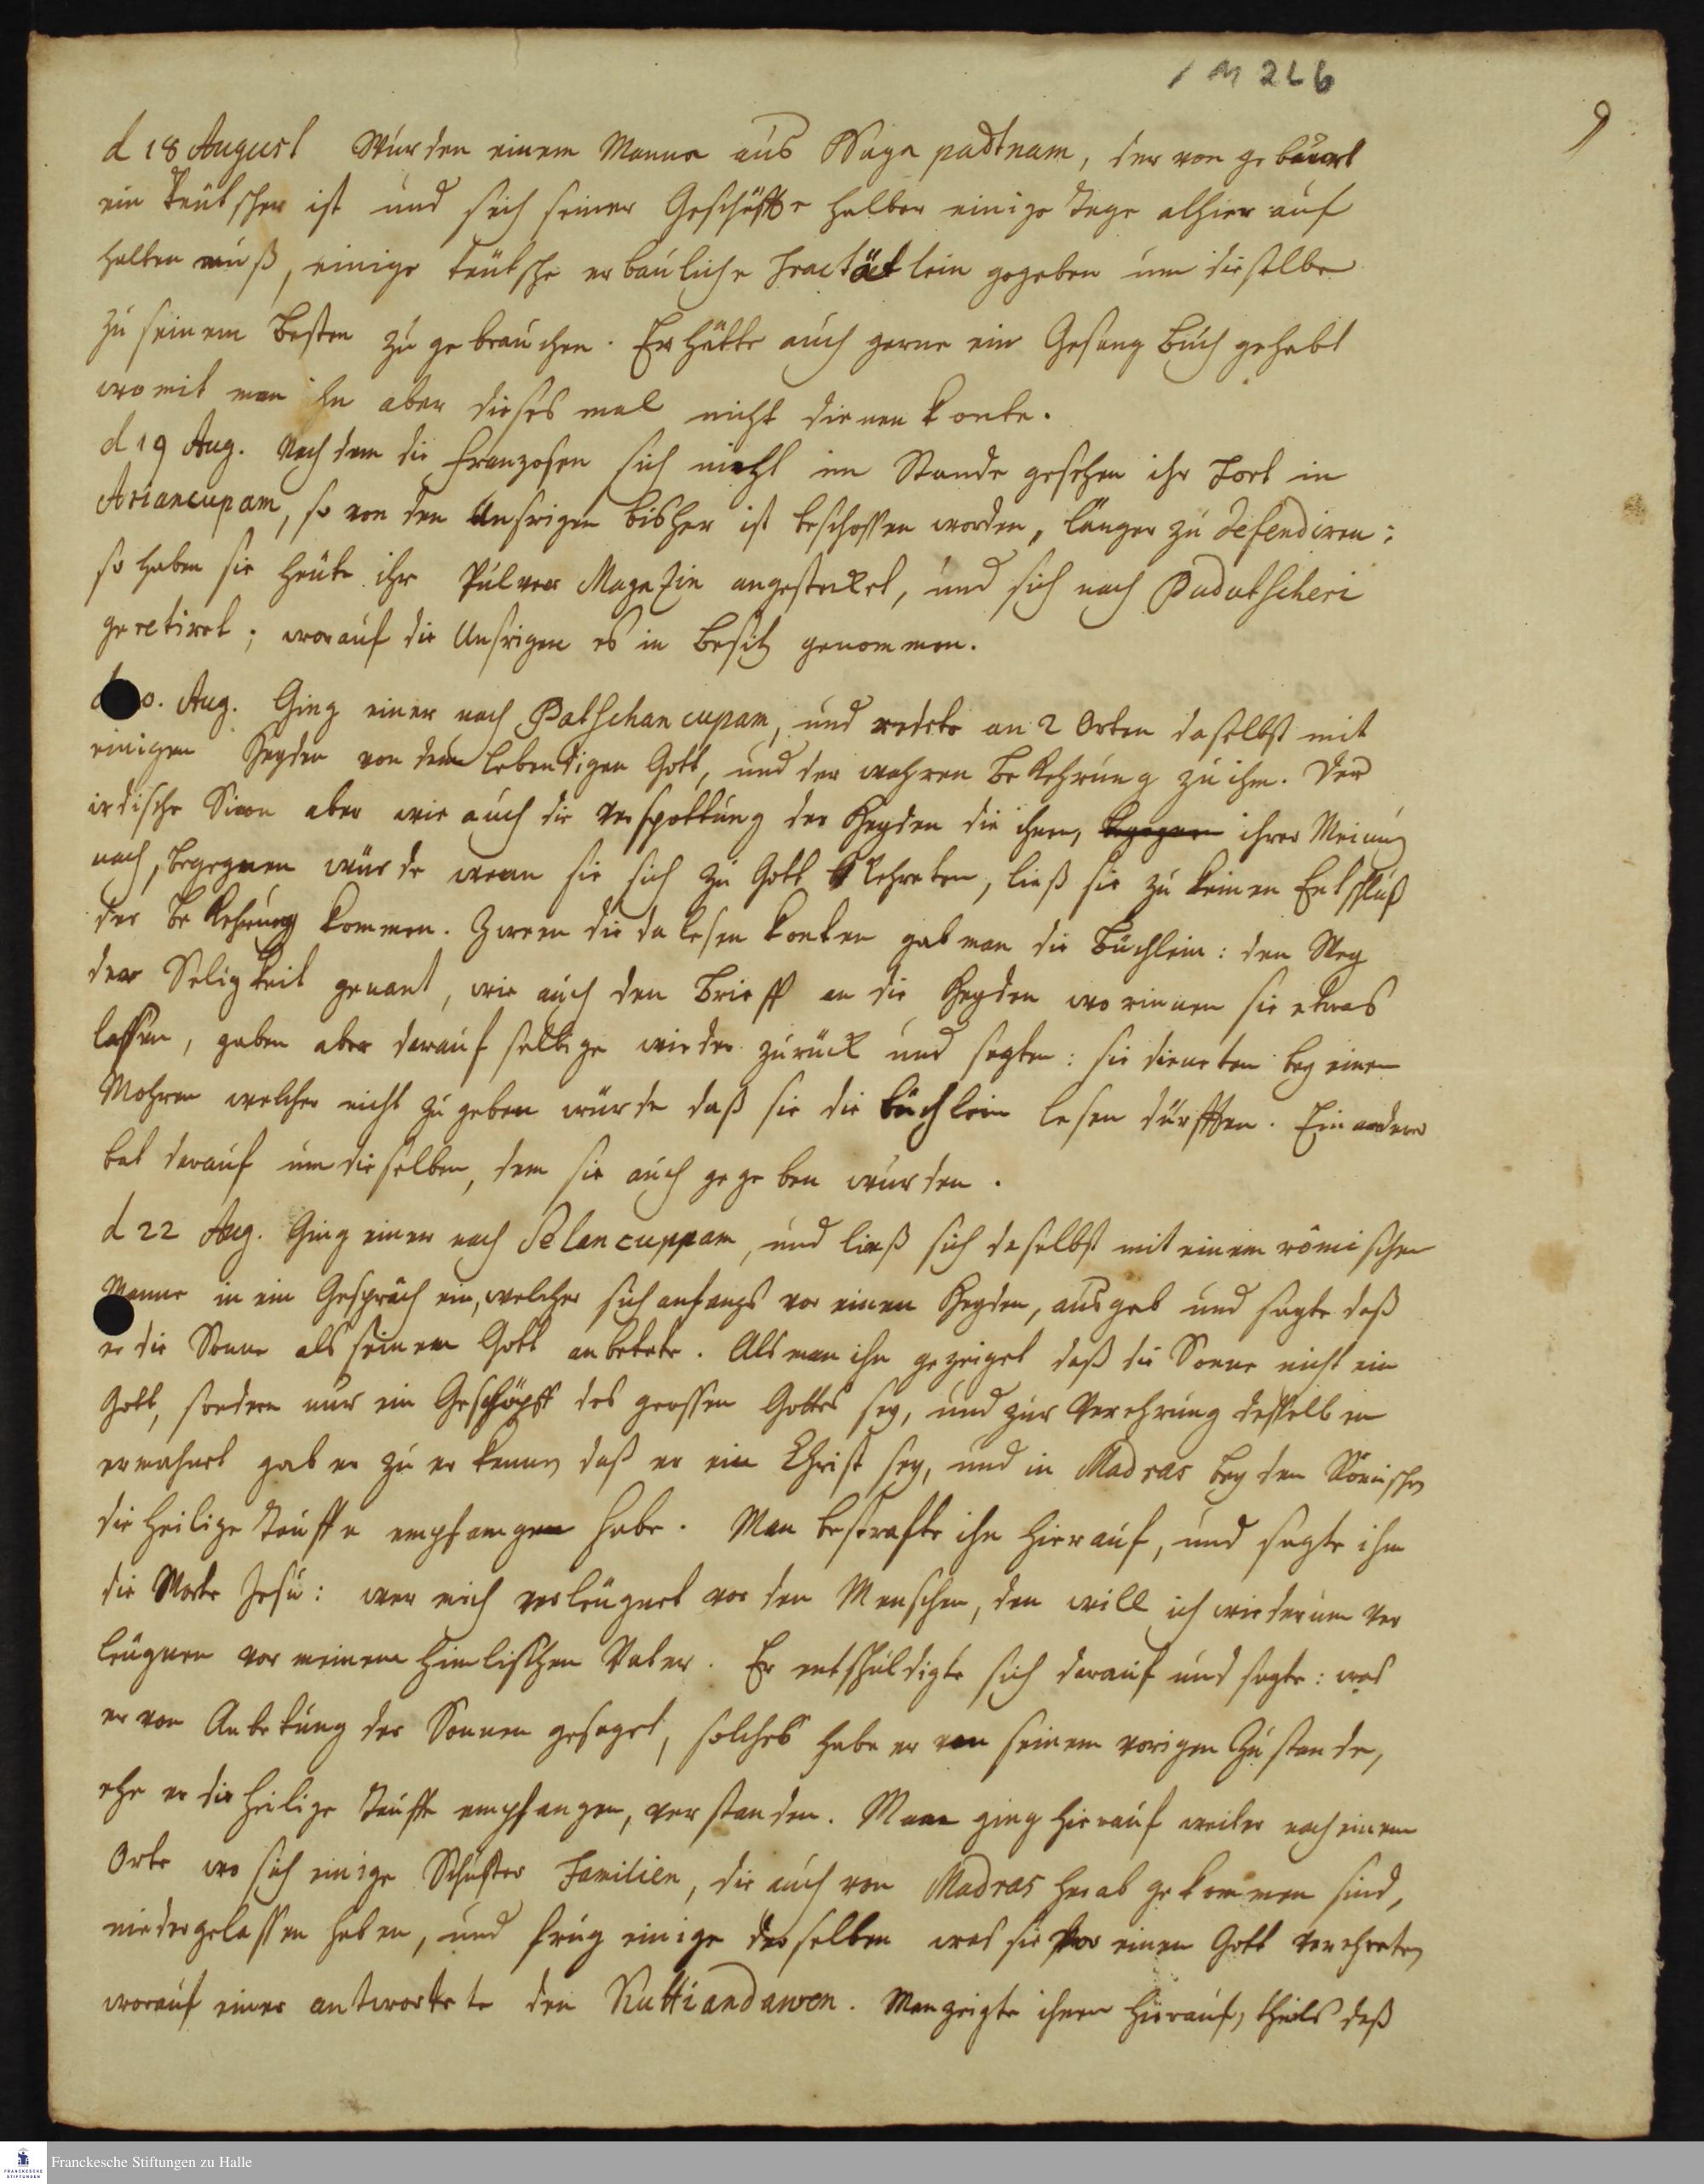 1 M 226
9
d 18 August Wurden einem Manne aus Naga padtnam, der von gebührt
ein Teütscher ist und sich seiner Geschäffte halber einige Tage alhier auf
halten muß, einige teütsche erbauliche Tractätlein gegeben um dieselbe
zu seinem Besten zu gebrauchen. Er hätte auch gerne ein Gesang Buch gehabt
womit man ihn aber dieses mal nicht dienen konte.
d 19 Aug. Nach dem die Franzosen sich nicht im Stande gesehen ihr Fort in
Ariancupam, so von den Unsrigen bisher ist beschossen worden, länger zu defendiren:
so haben sie heüte ihr Pulver Magazin angestecket, und sich nach Pudutscheri
geretiret; worauf die Unsrigen es in Besitz genommen.
d 0. Aug. Ging einer nach Patschancupam, und redete an 2 Orten daselbst mit
einigen Heyden von dem lebendigen Gott, und der wahren Bekehrung zu ihm. Der
irdische Sinn aber wie auch die Verspottung der Heyden die ihnen, begegnen ihrer Meinung
nach, begegnen würde wenn sie sich zu Gott bekehreten, ließ sie zu keinen Entschluß
der Bekehrung kommen. Zween die da lesen konten gab man die Büchlein: den Weg
der Seligkeit genant, wie auch den Brieff an die Heyden worinnen sie etwas
lassen, gaben aber darauf selbige wieder zurück und sagten: sie dieneten bey einem
Mohren welcher nicht zugeben würde daß sie die Büchlein lesen dürfften. Ein anderer
bat darauf um dieselben, dem sie auch gegeben wurden.
d 22 Aug. Ging einer nach Selancuppam, und ließ sich daselbst mit einem römischen
Manne in ein Gespräch ein, welcher sich anfangs vor einen Heyden, ausgab und sagte daß
er die Sonne als seinen Gott anbetete. Als man ihn gezeiget daß die Sonne nicht ein
Gott, sondern nur ein Geschöpff des grossen Gottes sey, und zur Verehrung desselben
ermahnet gab er zu erkennen daß er ein Christ sey, und in Madras bey den Römischen
die heilige Tauffe empfangen habe. Man bestrafte ihn hierauf, und sagte ihm
die Worte Jesu: wer mich verleügnet vor den Menschen, den will ich wiederum ver
leügnen vor meinem himlischen Vater. Er entschuldigte sich darauf und sagte: was
er von Anbetung der Sonnen gesaget, solches habe er von seinem vorigen Zustande,
ehe er die heilige Tauffe empfangen, verstanden. Man ging hierauf weiter nach einem
Orte wo sich einige Schuster Familien, die auch von Madras herab gekommen sind,
niedergelassen haben, und frug einige derselben was sie vor einen Gott verehreten
worauf einer antwortete den Kuttiandawen. Man zeigte ihnen hierauf, theils daß
Franckesche Stiftungen zu Halle